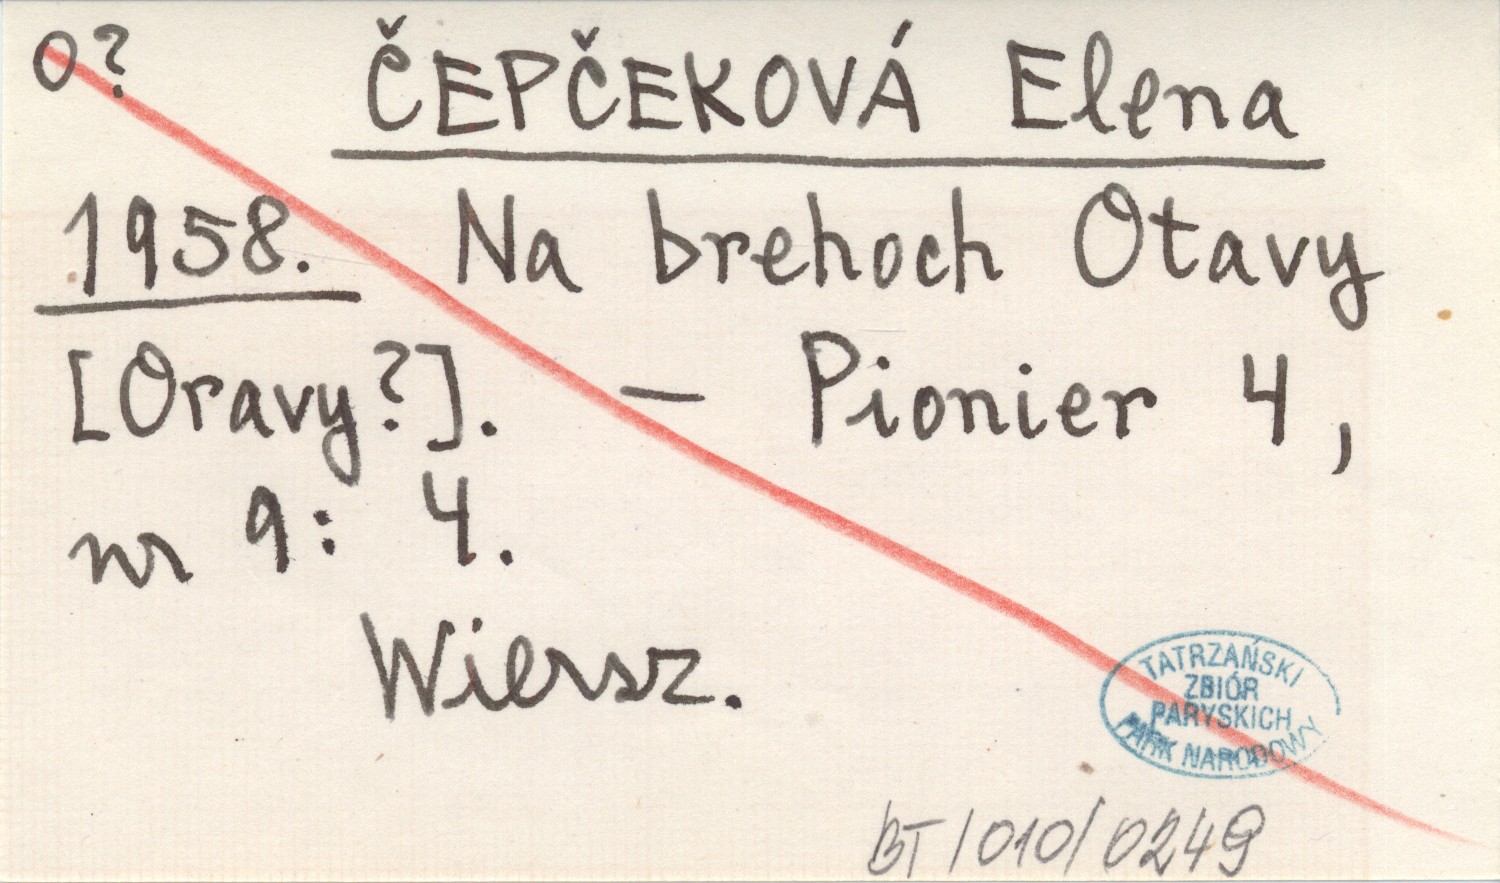 O? ČEPČEKOVÁ Elena
1958. Na brehoch Otavy
[Oravy?]. — Pionier 4,
nr 9: 4.
Wiersz.
TATRZAŃSKI
ZBIÓR
PARYSKICH
PARK NARODOWY
BT/010/0249